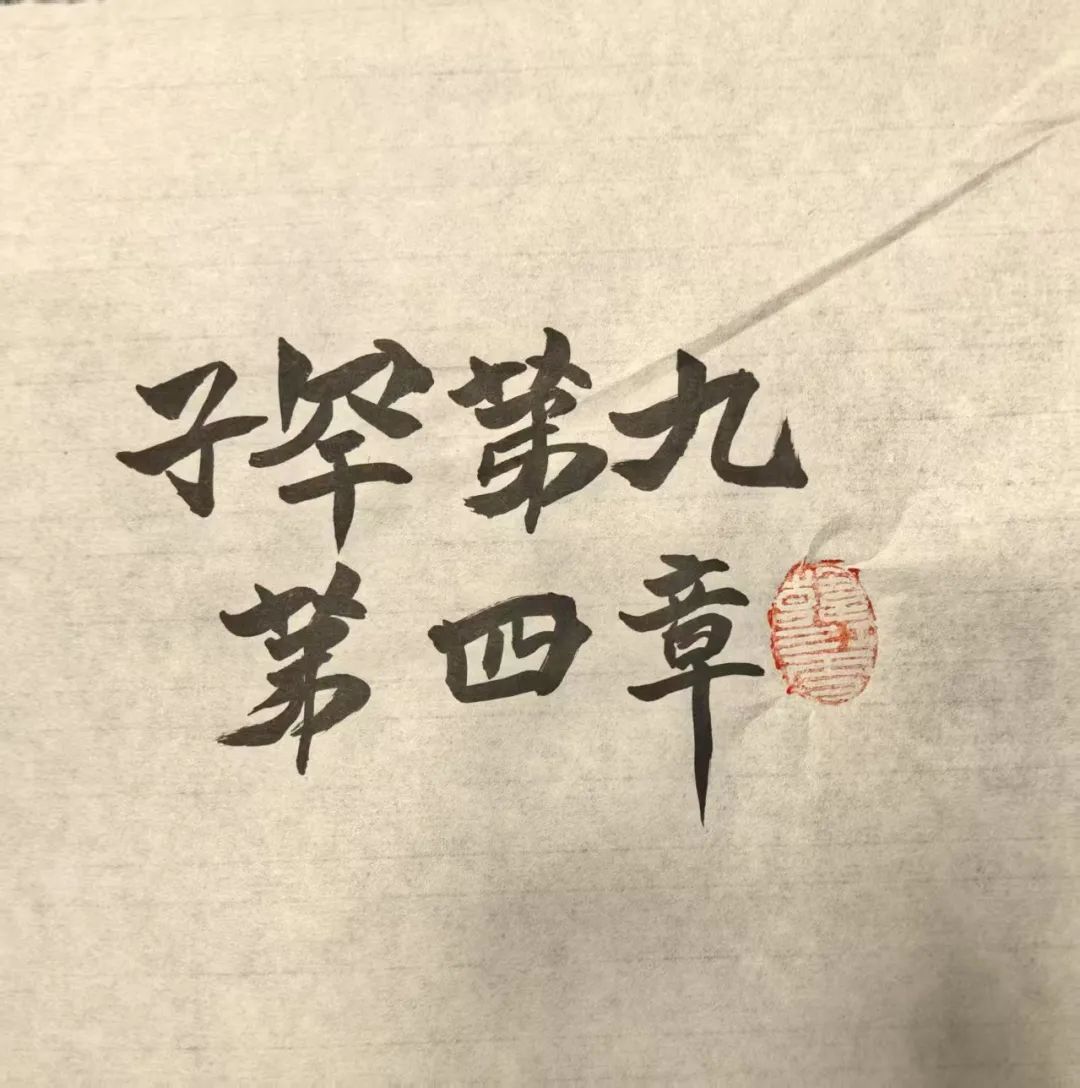 子罕第九
第四章